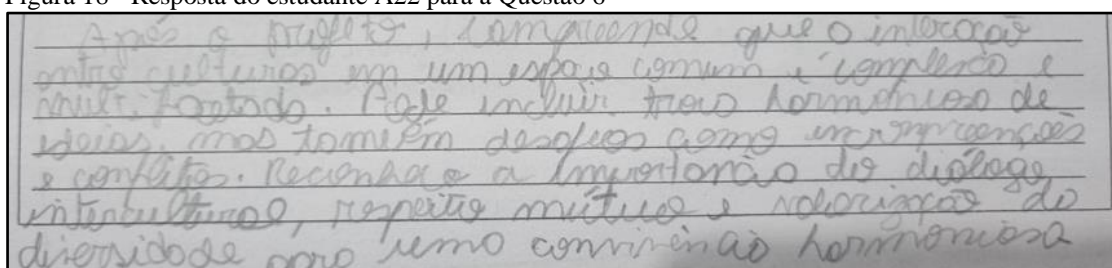 Figura 18 - Resposta do estudante A22 para a Questão 8
Após o projeto, compreende que o interação
entre culturas em um espaço comum é complexo e
multifacetado. Pode incluir troca harmoniosa de
ideias, mas também desafios como incompreenções
e conflitos. Reconhece a importância do diálogo
intercultural, respeito mútuo e valorização da
diversidade para uma convivência harmoniosa